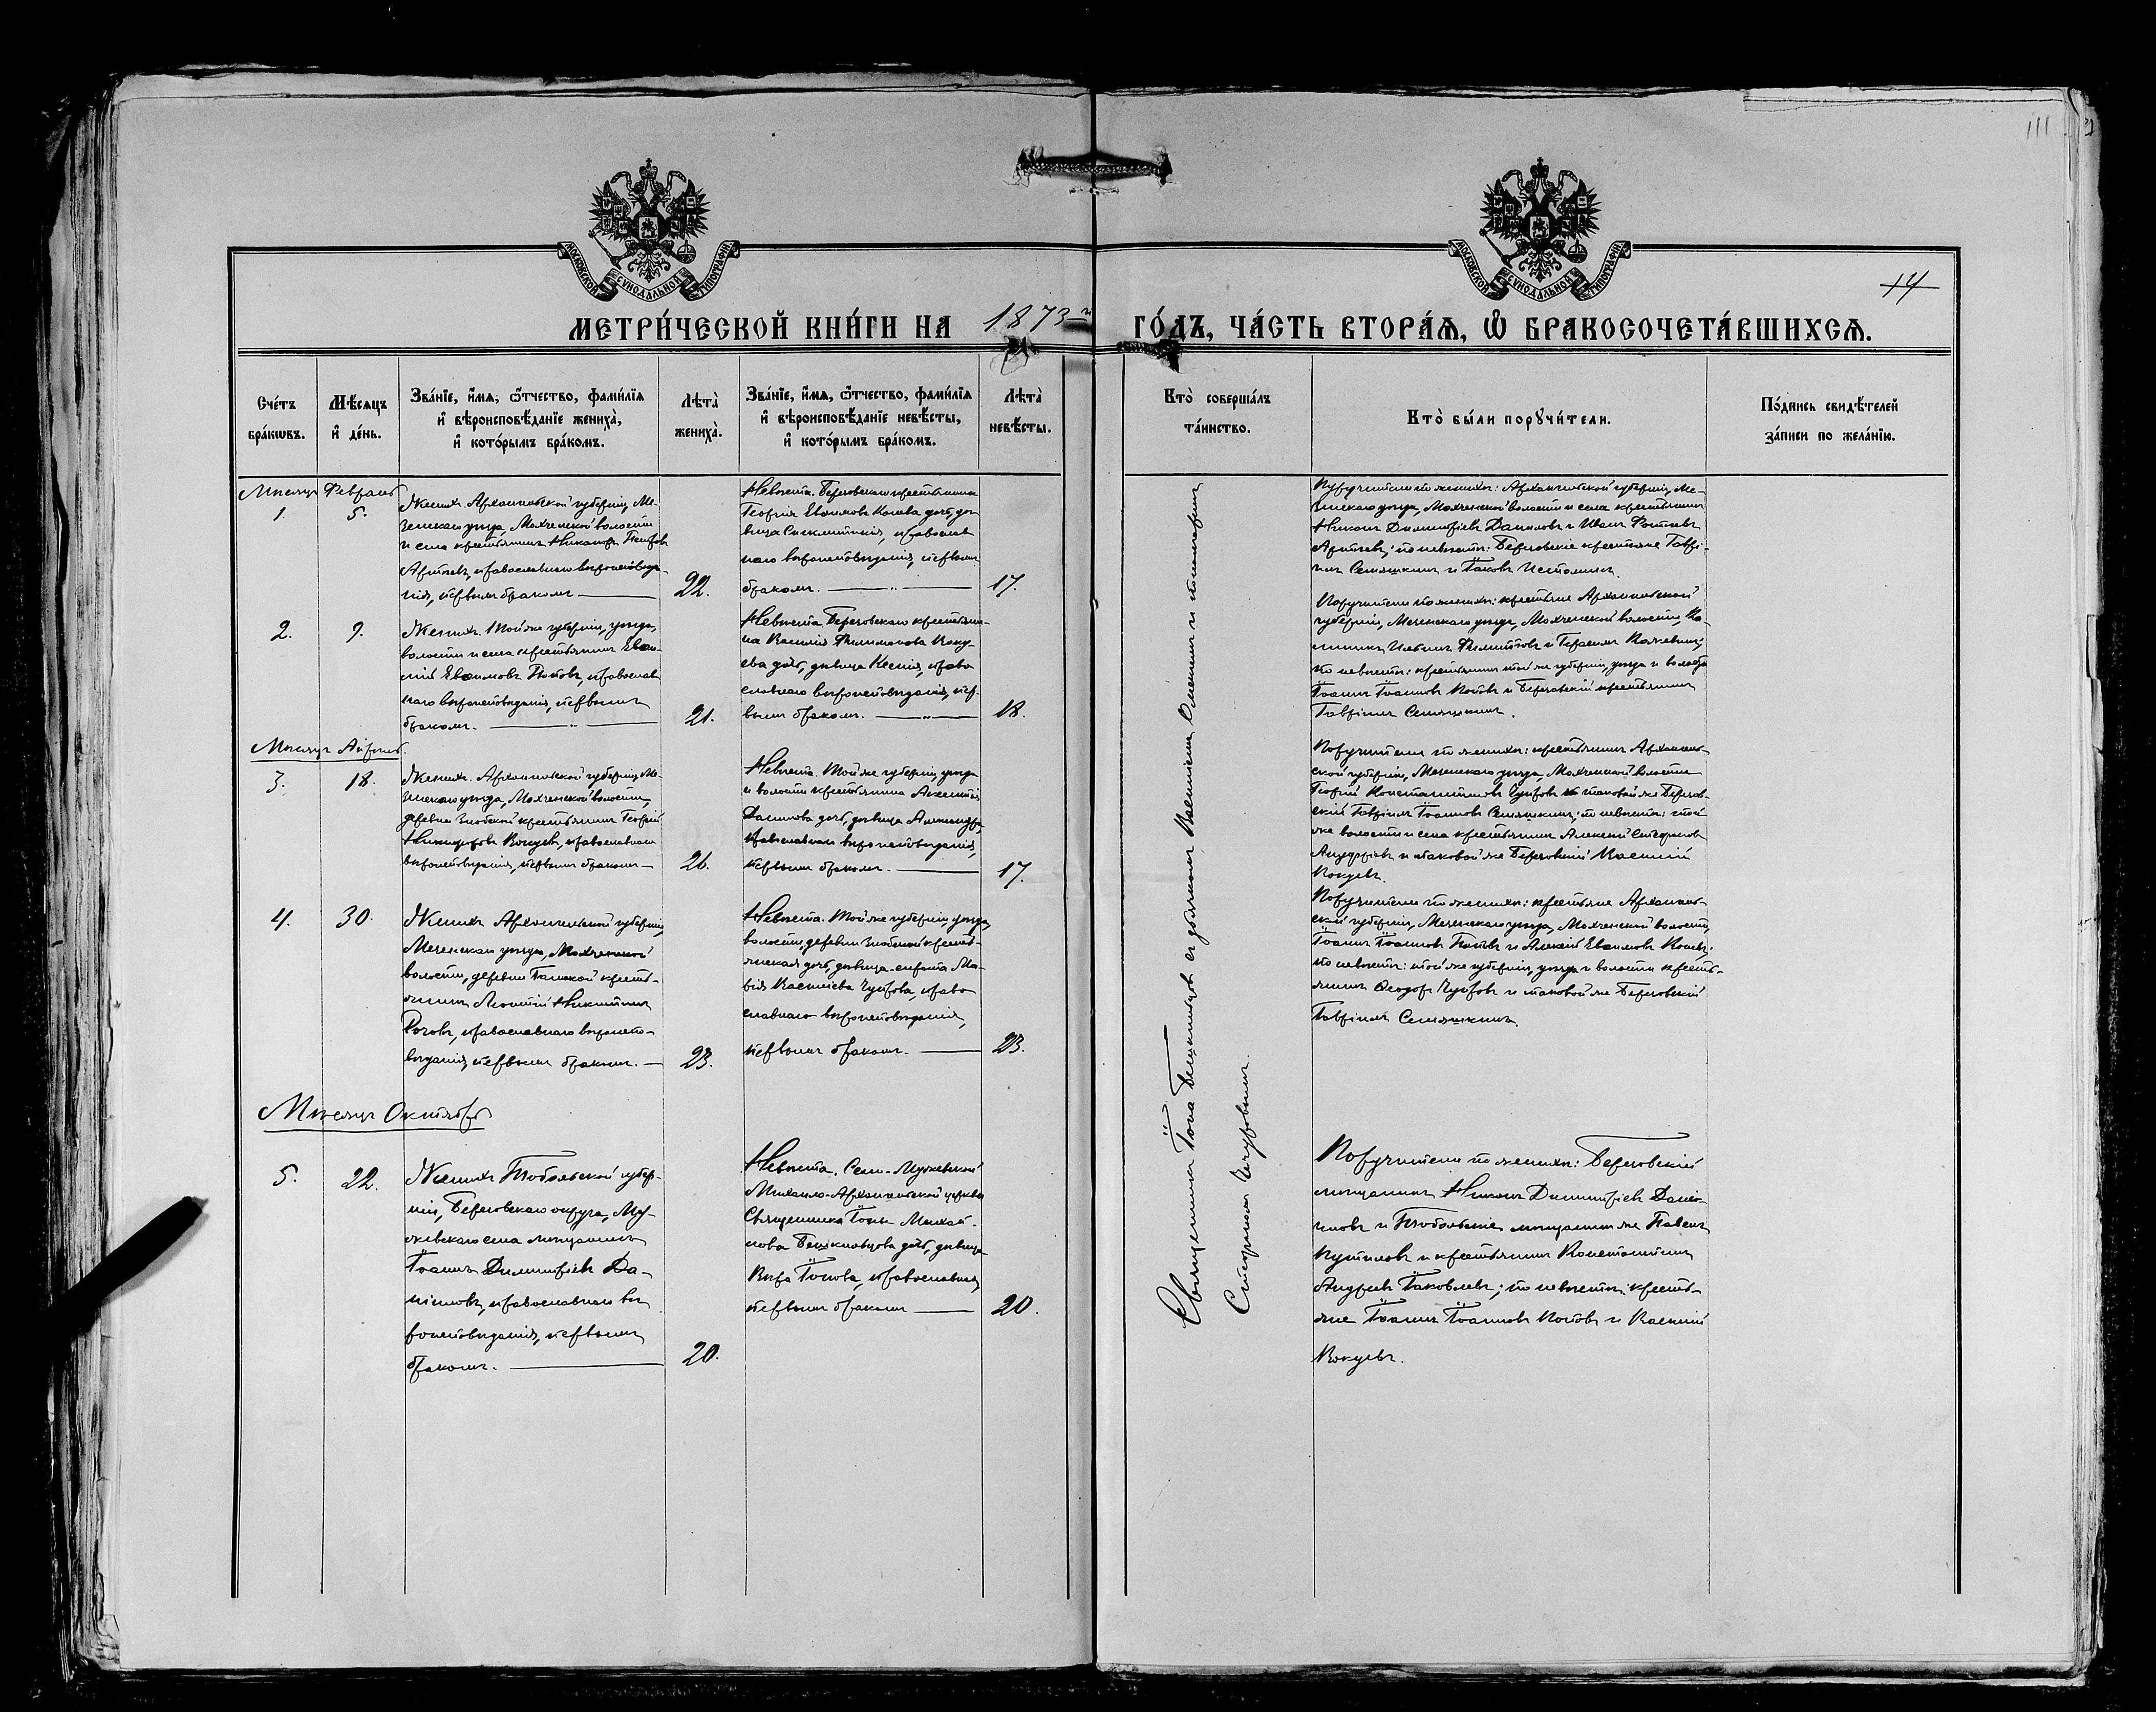 111
14
МОСКОВСКОЙ СѴНОДАЛЬНОЙ ТИПОГРАФІИ
МОСКОВСКОЙ СѴНОДАЛЬНОЙ ТИПОГРАФІИ
МЕТРИ́ЧЕСКОЙ КНИ́ГИ НА 1873 й ГО́ДЪ, ЧА́СТЬ ВТОРА́Ѧ, Ѡ҆ БРАКОСОЧЕТА́ВШИХСѦ.
Сче́тъ бра́кѡвъ.
Мѣ́сѧцъ и҆ де́нь.
Зва́нїе, и҆́мѧ, ѻ҆́тчество, фамилїѧ
и҆ вѣроисповѣ́данїе жениха̀,
и҆ кото́рымъ бра́комъ.
Лѣта̀ жениха̀.
Зва́нїе, и҆́мѧ, ѻ҆́тчество, фамилїѧ
и҆ вѣроисповѣ́данїе невѣ́сты,
и҆ кото́рымъ бра́комъ.
Лѣта̀ невѣ́сты.
Кто̀ соверша́лъ та́инство.
Кто̀ бы́ли порꙋчи́тели.
По́дпись свидѣ́телей за́писи по жела́нїю.
Мѣсяцъ Февраль
1.
5.
Женихъ Архангельской губерніи, Ме-
зенскаго уѣзда, Мохченской волости
и села крестьянинъ Никаноръ Петровъ
Артѣевъ, православнаго вѣроисповѣда-
нія, первымъ бракомъ
22.
Невѣста. Березовскаго крестьянина
Георгія Евѳимова Конева дочь, дѣ-
вица Синклитикія, православ
наго вѣроисповѣданія, первымъ
бракомъ.
17.
Поручители по женихѣ: Архангельской губерніи, Ме-
зенскаго уѣзда, Мохченской волости и села крестьянинъ
Никонъ Димитріевъ Даниловъ и Иванъ Фотіевъ
Артѣевъ; по невѣстѣ: Березовскіе крестьяне Гаврі-
илъ Семяшкинъ и Іаковъ Истоминъ.
2.
9.
Женихъ. Той же губерніи, уѣзда,
волости и села крестьянинъ Еван-
Евѳимовъ Поповъ, православ
наго вѣроисповѣданія, первымъ
бракомъ.
21.
Невѣста Березовскаго крестьяни-
на Василія Филимонова Коку-
ева дочь, дѣвица Ксенія, право
славнаго вѣроисповѣданія, пер-
вымъ бракомъ.
18.
Поручители по женихѣ: крестьяне Архангельской
губерніи, Мезенскаго уѣзда, Мохченской волости,
Ильинъ Филипповъ и Герасимъ
по невѣстѣ: крестьянинъ той же губерніи, уѣзда и волости
Іоаннъ Іоанновъ Поповъ и Березовскій крестьянинъ
Гавріилъ Семяшкинъ.
Мѣсяцъ Апрѣль.
3.
18.
Женихъ. Архангельской губерніи, Ме-
зенскаго уѣзда, Мохченской волости,
деревни крестьянинъ Георгій
Никифоровъ Кокуевъ, православнаго
вѣроисповѣданія, первымъ бракомъ
26.
Невѣста. Той же губерніи, уѣзда
и волости крестьянина
Данилова дочь, дѣвица Александра,
православнаго вѣроисповѣданія,
первымъ бракомъ.
17.
Поручители по женихѣ: крестьянинъ Архангель-
ской губерніи, Мезенскаго уѣзда, Мохченской волости
Георгій Константиновъ Чупровъ и таковой же Березов-
скій Гавріилъ Іоанновъ Семяшкинъ; по невѣстѣ: той
же волости и села крестьянинъ Алексѣй Стефановъ
и таковой же Березовскій Василій
Кокуевъ.
4.
30.
Женихъ Архангельской губерніи,
Мезенскаго уѣзда, Мохченской
волости, деревни Гамской кресть-
янинъ Леонтій Никитинъ
Рочевъ, православнаго вѣроиспо-
вѣданія, первымъ бракомъ.
23.
Невѣста. Той же губерніи, уѣзда,
волости, деревни кресть-
янская дочь, дѣвица-сирота Ма-
рія Василіева Чупрова, право
славнаго вѣроисповѣданія,
первымъ бракомъ.
23.
Поручители по женихѣ: крестьяне Архангель-
ской губерніи, Мезенскаго уѣзда, Мохченской волости,
Іоаннъ Іоанновъ Поповъ и Алексій Евѳимовъ Коневъ;
по невѣстѣ: той же губерніи, уѣзда и волости кресть-
янинъ Ѳеодоръ Чупровъ и таковой же Березовскій
Гавріилъ Семяшкинъ.
Мѣсяцъ Октябрь
5.
22.
Женихъ Тобольской губер-
ніи, Березовскаго округа, Му-
жевскаго села мѣщанинъ
Іоаннъ Димитріевъ Да-
ниловъ, православнаго вѣ
роисповѣданія, первымъ
бракомъ.
20.
Невѣста. Села-Мужевской
Михаило-Архангельской церкви
Священника Іоны Михай-
лова дочь, дѣвица
Вѣра Іонова, православная,
первымъ бракомъ
20.
Поручители по женихѣ: Березовскій
мѣщанинъ Никонъ Димитріевъ Дани-
ловъ и Тобольскіе мѣщанинъ же Павелъ
Путиловъ и крестьянинъ Константинъ
Андреевъ Іаковлевъ; по невѣстѣ: кресть-
яне Іоаннъ Іоанновъ Поповъ и Василій
Кокуевъ.
Священникъ Іона съ дьячкомъ Василіемъ и пономаремъ